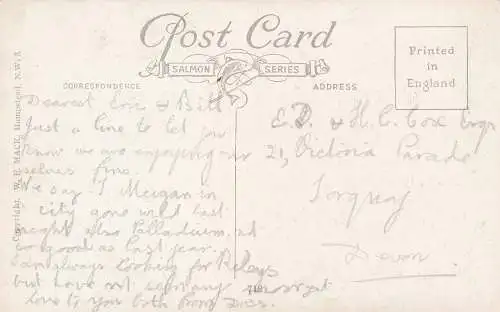 Post Card
SALMON SERIES
CORRESPONDENCE
ADDRESS
Printed
in
England
Copyright, W. E. MACK, Hampstead, N.W.3
Dearest Eric & Bill
Just a line to let you
know we are enjoying our
selves fine.
We say T Meigan in
city gone wild last
night also Palladium, not
so good as last year.
am always looking for Relays
but have not seen any
love to you both from
E.D. & H. C. Cox Esqrs
21, Victoria Parade
Torquay
Devon